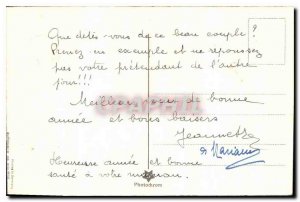 Que dites vous de ce beau couple?
Prenez en exemple et ne repoussez
pas votre prétendant de l'autre
jour!!!
Meilleurs vœux de bonne
année et bons baisers
Jeannette
et Mariane
Heureuse année et bonne
santé à votre maman.
Photochrom